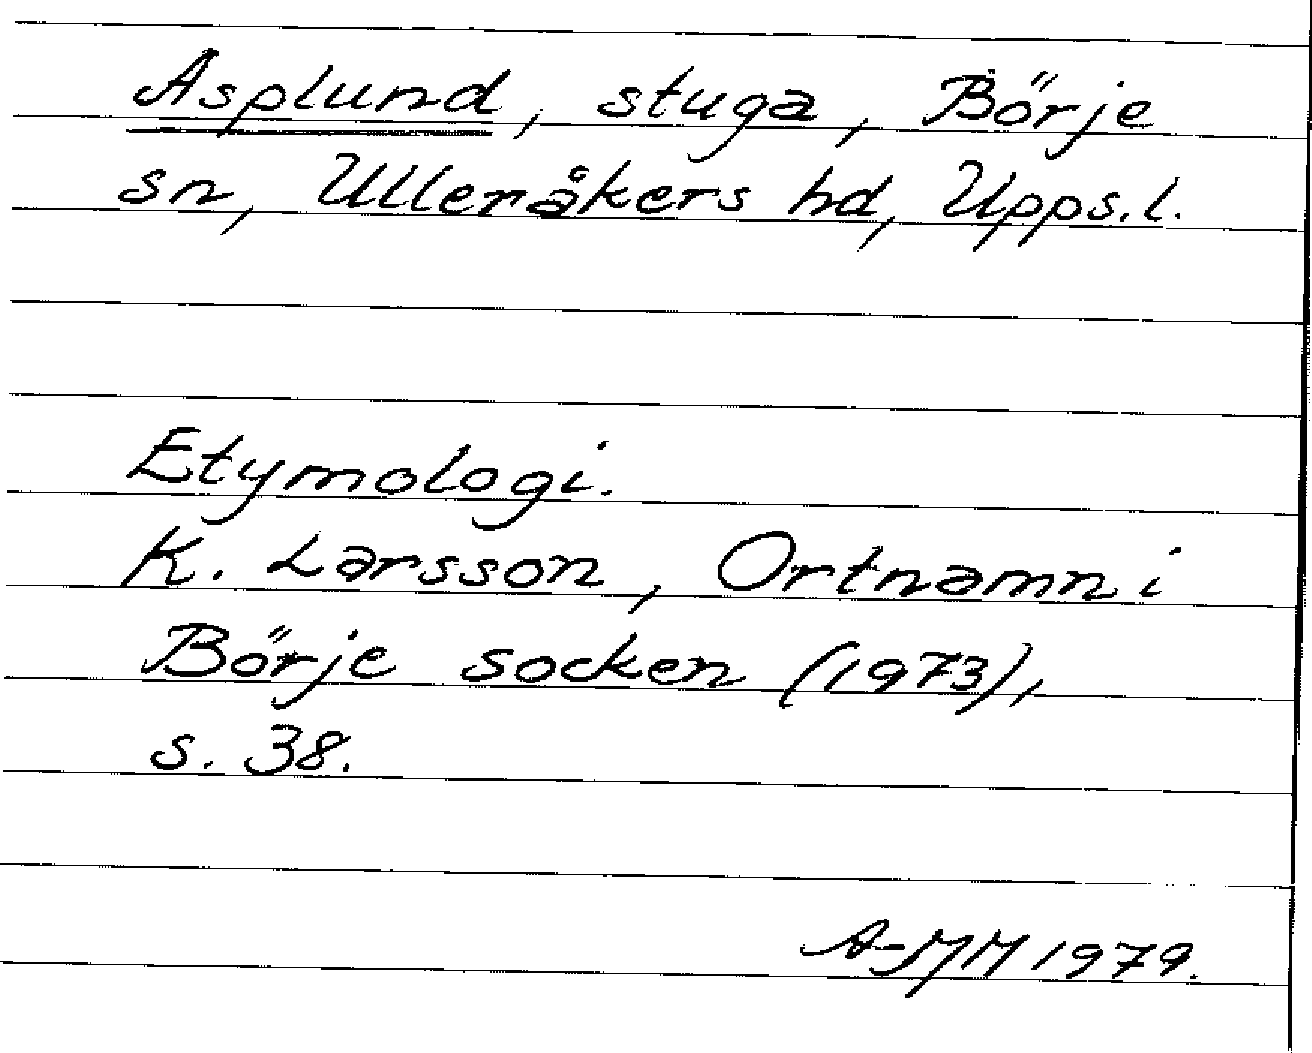 Asplund, stuga, Börje
sn, Ulleråkers hd, Upps.l.
Etymologi.
K. Larsson, Ortnamn i
Börje socken (1973),
s. 38.
A-MM 1979.